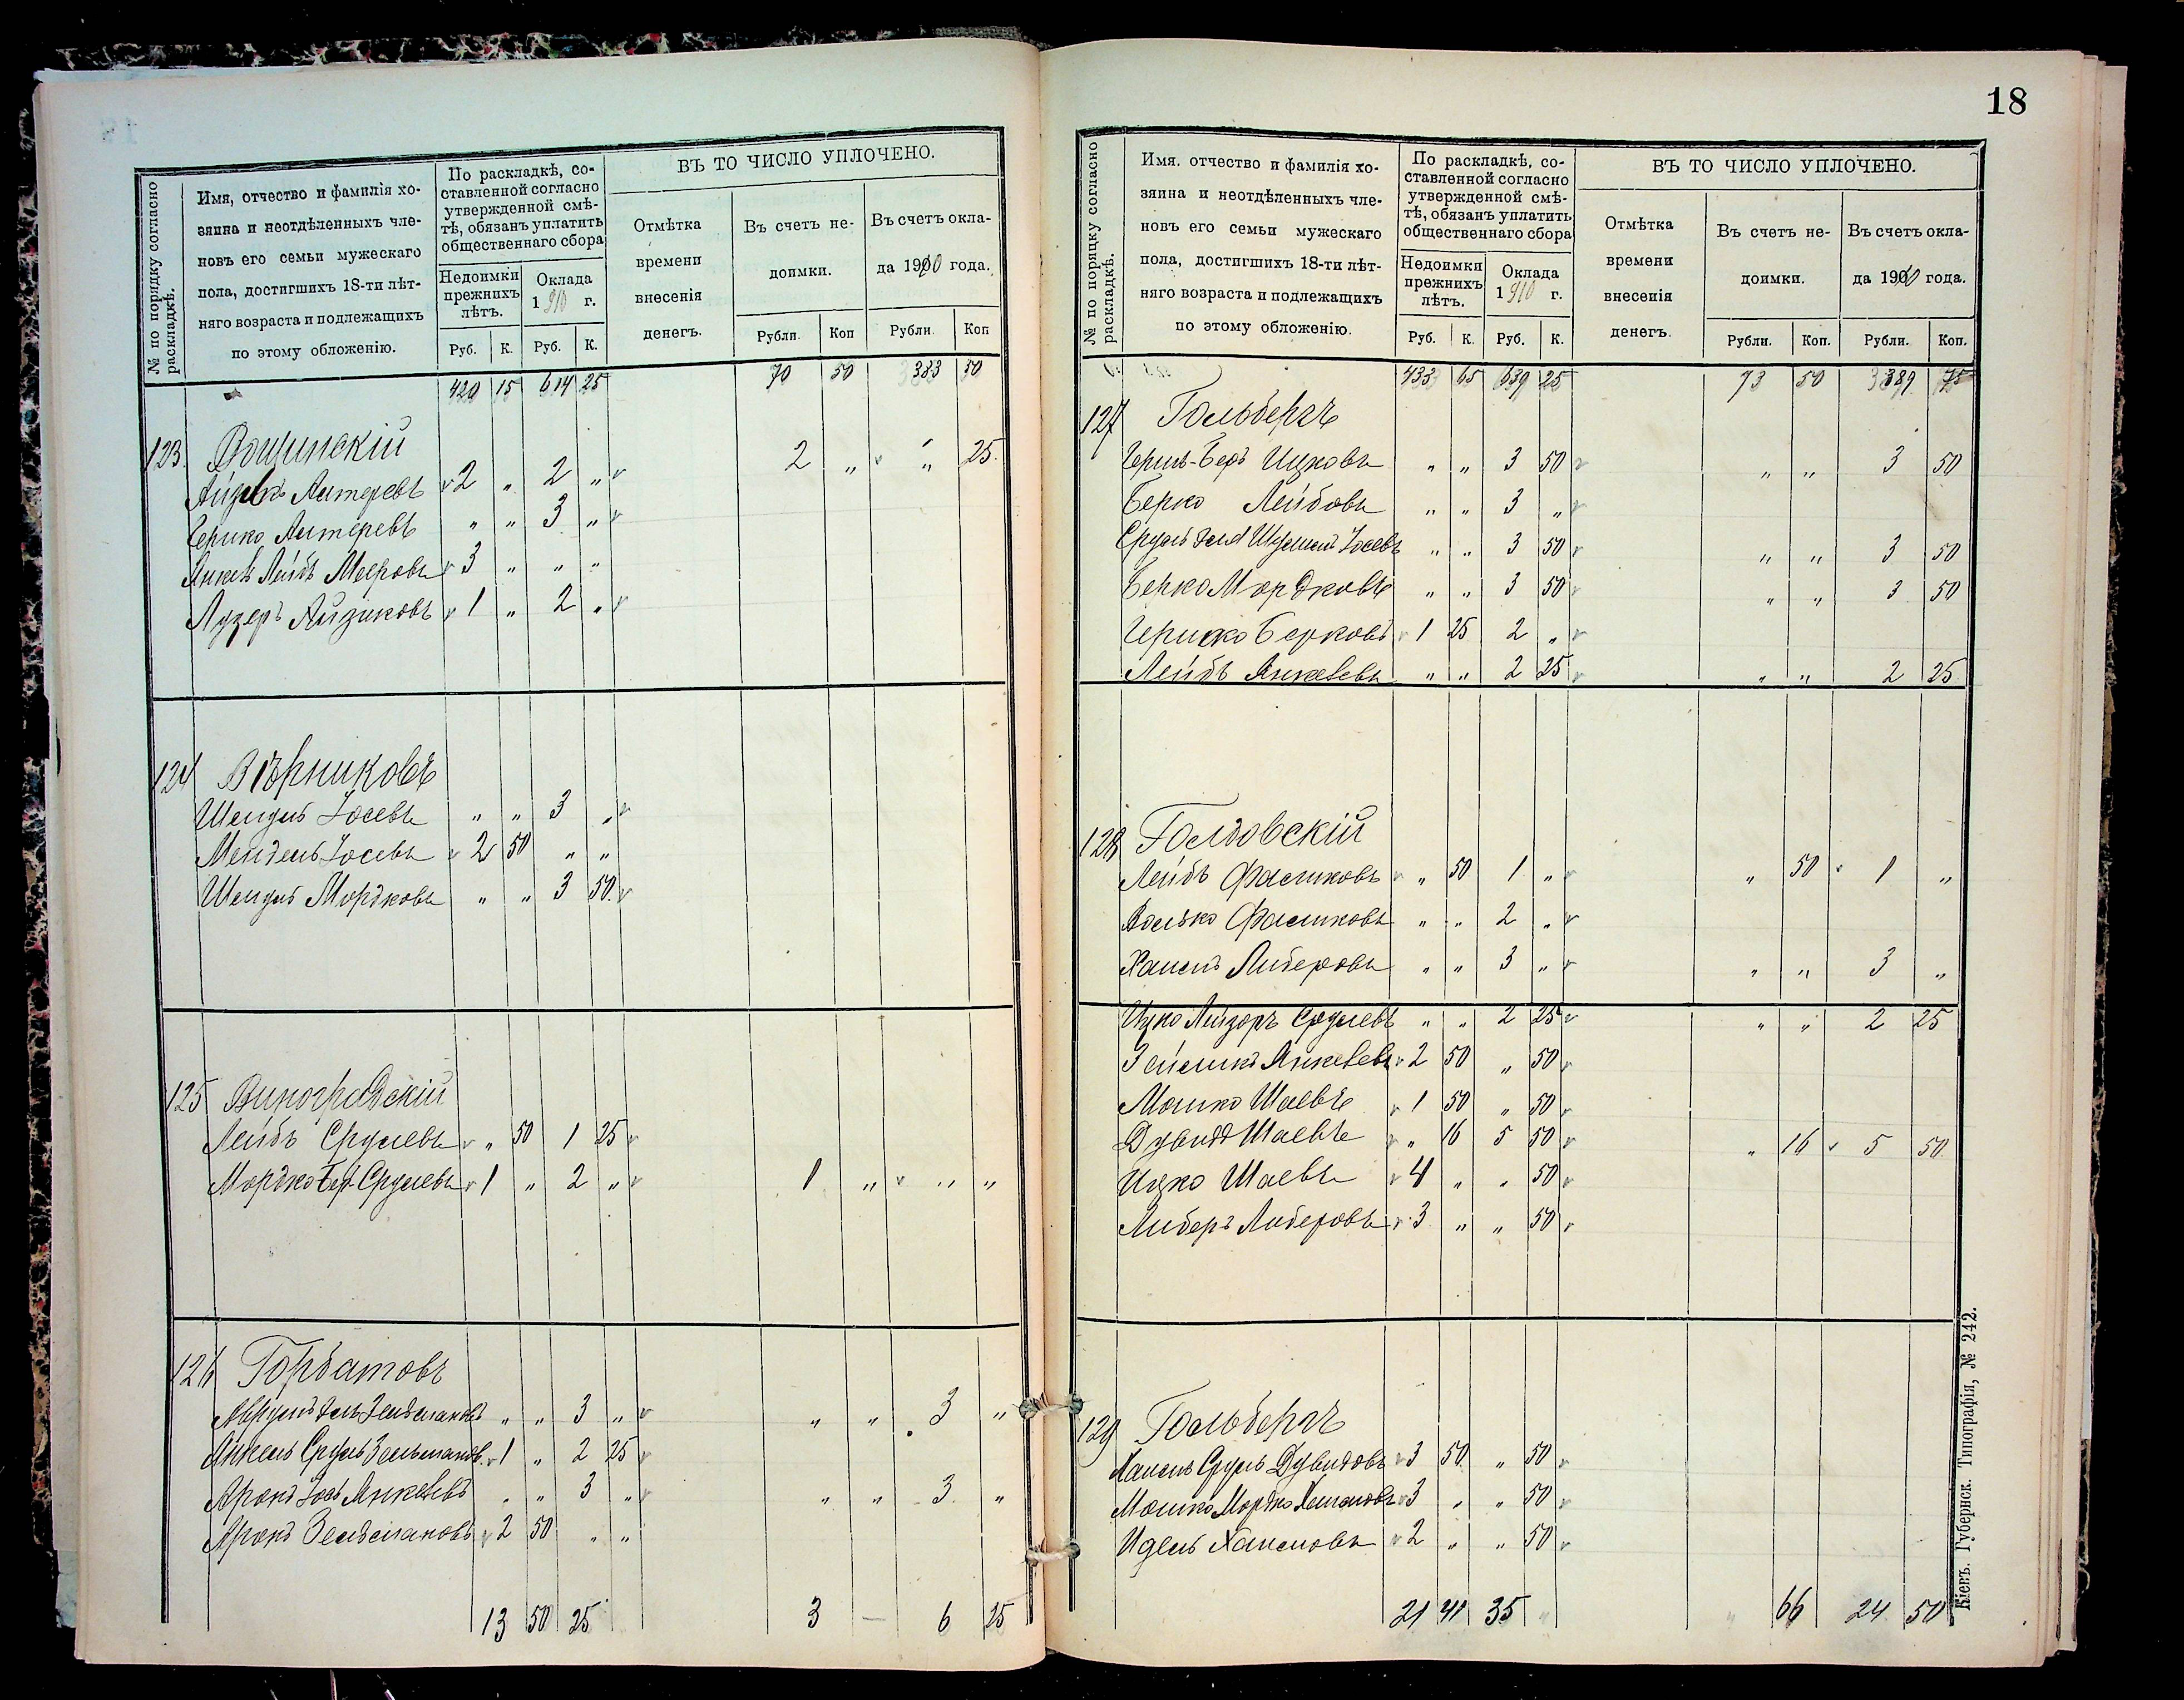 18
№№ по порядку согласно раскладкѣ.
Имя, отчество и фамилія хозяина и неотдѣленныхъ членовъ его семьи мужескаго пола, достигшихъ 18-ти лѣтняго возраста и подлежащихъ по этому обложенію.
По раскладкѣ, составленной согласно утвержденной смѣтѣ, обязанъ уплатить общественнаго сбора
Недоимки прежнихъ лѣтъ.
Оклада 1910 г.
Руб. К. Руб. К.
ВЪ ТО ЧИСЛО УПЛОЧЕНО.
Отмѣтка времени внесенія денегъ.
Въ счетъ недоимки.
Въ счетъ оклада 1910 года.
Рубли. Коп Рубли. Коп
420 15 614 25 70 50 383 50
123. Вощинскій
Айзикъ Алтеревъ 2 „ 2 „ 2 „ „ 25.
Гершко Алтеревъ „ „ 3 „
Янкель Лейбъ Мееровъ 3 „ „ „
Лузеръ Айзиковъ 1 „ 2 „
124 Вѣрниковъ
Шендль Іосевъ „ „ 3 „
Мендель Іосевъ 2 50 „ „
Шендль Мордковъ „ „ 3 50.
125 Виноградскій
Лейбъ Срулевъ „ 50 1 25
Мордко Бер. Срулевъ 1 „ 2 „ 1 „ „ „
126 Горбатовъ
Аврумъ Зельмановъ „ „ 3 „ „ „ 3 „
Янкель Сруль Зельманов. 1 „ 2 25
Аронъ Іось Янкелевъ „ „ 3 „ „ „ 3 „
Аронъ Зельмановъ 2 50 „ „
13 50 25 3 — 6 25
№№ по порядку согласно раскладкѣ.
Имя, отчество и фамилія хозяина и неотдѣленныхъ членовъ его семьи мужескаго пола, достигшихъ 18-ти лѣтняго возраста и подлежащихъ по этому обложенію.
По раскладкѣ, составленной согласно утвержденной смѣтѣ, обязанъ уплатить общественнаго сбора
Недоимки прежнихъ лѣтъ.
Оклада 1910 г.
Руб. К. Руб. К.
ВЪ ТО ЧИСЛО УПЛОЧЕНО.
Отмѣтка времени внесенія денегъ.
Въ счетъ недоимки.
Въ счетъ оклада 1910 года.
Рубли. Коп. Рубли. Коп.
433 65 639 25 73 50 389 75
127 Гольбергъ
Герш-Беръ Ицковъ „ „ 3 50 „ „ 3 50
Берко Лейбовъ „ „ 3 „
Сруль Іосевъ „ „ 3 50 „ „ 3 50
Берко Мордковъ „ „ 3 50 „ „ 3 50
Гершко Берковъ 1 25 2 „
Лейбъ Янкелевъ „ „ 2 25 „ „ 2 25
128 Голдовскій
Лейбъ Фаликовъ „ 50 1 „ „ 50 1 „
Волько Фаликовъ „ „ 2 „
Хаимъ Либеровъ „ „ 3 „ „ „ 3 „
Ицко Лейзоръ Срулевъ „ „ 2 25 „ „ 2 25
Зейликъ Янкелевъ 2 50 „ 50
Мошко Шаевъ 1 50 „ 50
Дувидъ Шаевъ „ 16 5 50 „ 16 5 50
Ицко Шаевъ 4 „ „ 50
Либеръ Либеровъ 3 „ „ 50
129 Гольбергъ
Хаимъ Сруль Дувидовъ 3 50 „ 50
Мошко Мордко Хаимовъ 3 „ „ 50
Идель Хаимовъ 2 „ „ 50
21 41 35 „ „ 66 24 50
Кіевъ. Губернск. Типографія, № 242.